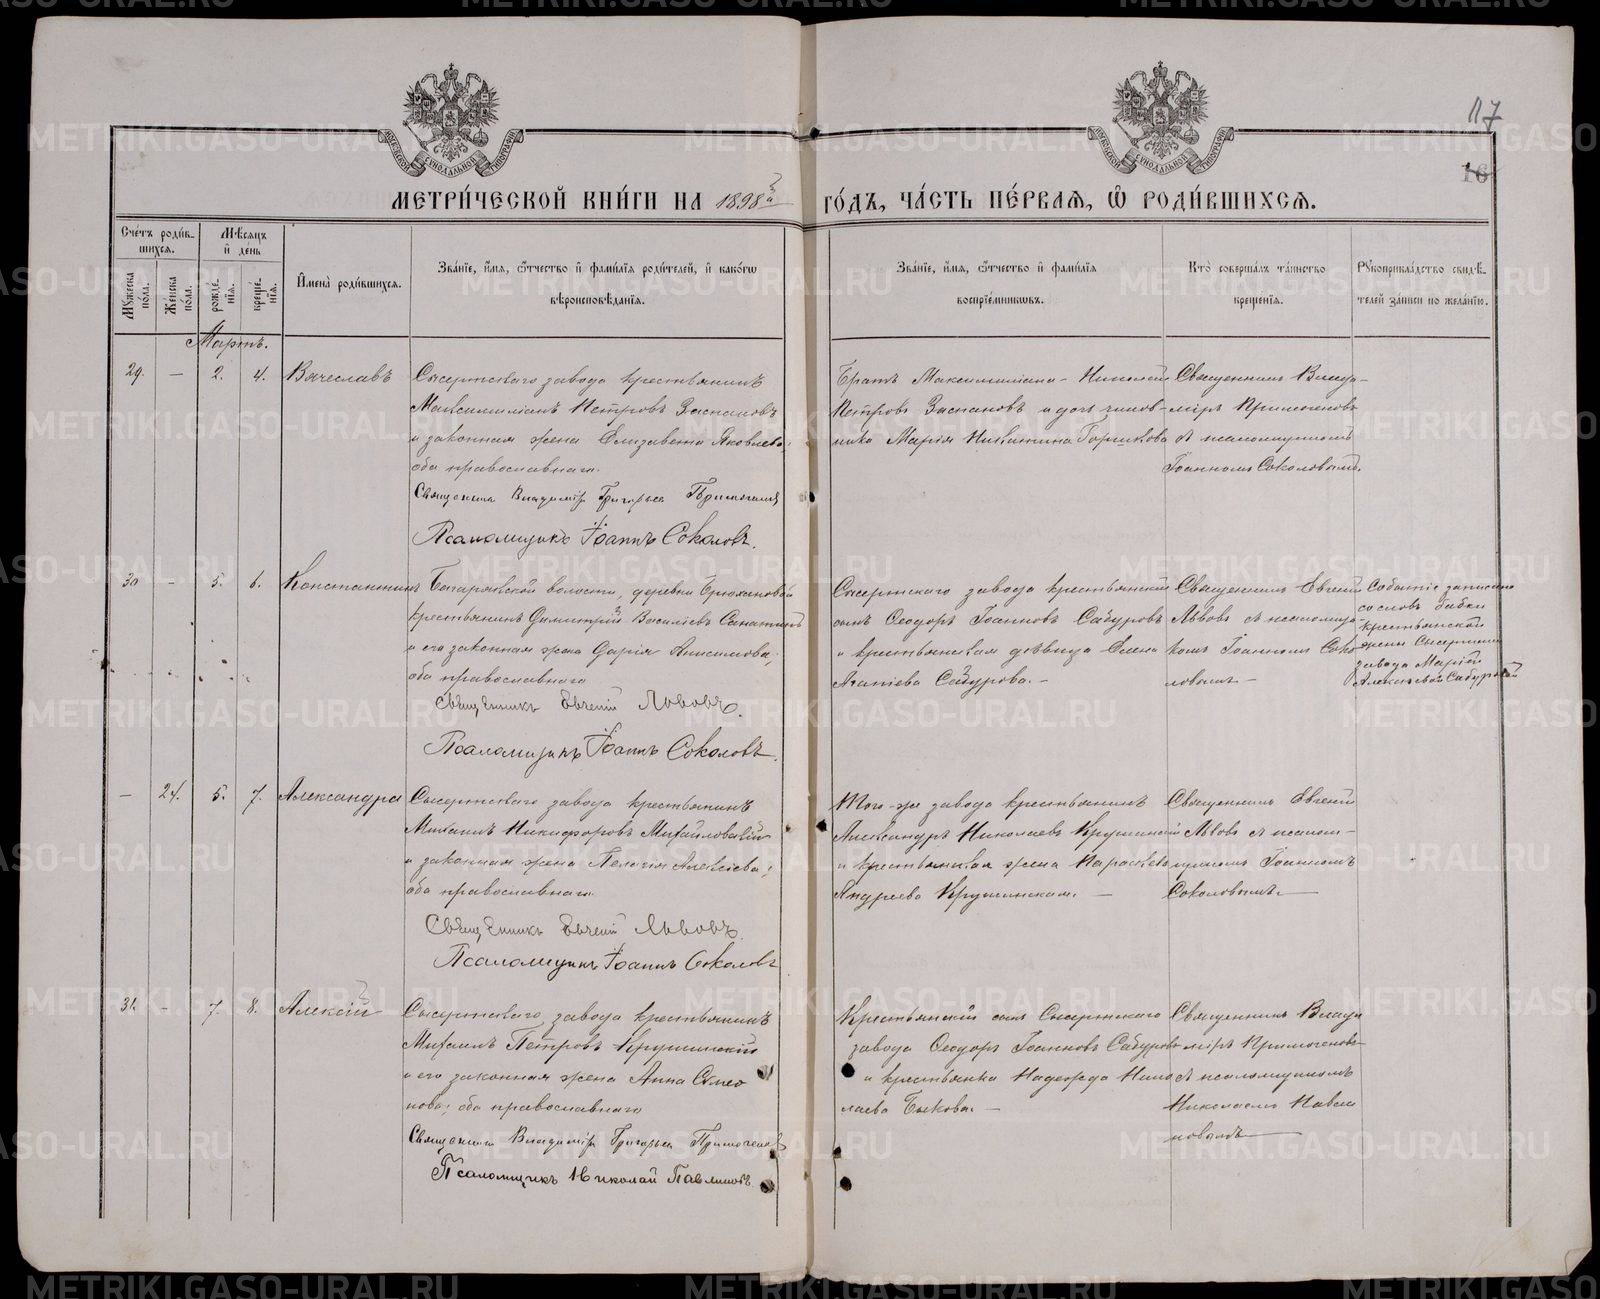 117
16
МЕТРИ́ЧЕСКОЙ КНИ́ГИ НА 1898й
ГО́ДЪ, ЧА́СТЬ ПЕ́РВАЯ, Ѡ РОДИ́ВШИХСЯ.
Сче́тъ роди́вшихся.
Му́жеска по́ла.
Же́нска по́ла.
Мѣ́сяцъ и҆ де́нь
рожде́нїѧ.
креще́нїѧ.
И҆мена̀ роди́вшихся.
Зва́нїе, и҆́мя, ѻ҆́тчество и҆ фами́лїя роди́телей, и҆ како́гѡ
вѣроисповѣ́данїя.
Зва́нїе, и҆́мя, ѻ҆́тчество и҆ фами́лїя
воспрїе́мниковъ.
Кто̀ соверша́лъ та́инство
креще́нїя.
Рꙋкоприкла́дство свидѣ́-
телей за́писи по жела́нїю.
Мартъ.
29. — 2. 4. Вячеславъ
Сысертскаго завода крестьянинъ
Максимиліанъ Петровъ Заспановъ
и законная жена Елизавета Яковлева,
оба православнаго.
Священникъ Владиміръ Григорьевъ
Псаломщикъ Іоаннъ Соколовъ.
Братъ Максимиліана - Николай
Петровъ Заспановъ и дочь чинов-
ника Марія Никитина
Священникъ Влади-
міръ
съ псаломщикомъ
Іоанномъ Соколовымъ.
30 - 5. 6. Константинъ
волости, деревни
крестьянинъ Димитрій Василіевъ
и его законная жена Дарія Анисимова,
оба православнаго
Священникъ Евгеній Львовъ.
Псаломщикъ Іоаннъ Соколовъ.
Сысертскаго завода крестьянскій
сынъ Ѳеодоръ Іоанновъ Сабуровъ
и крестьянская дѣвица Елена
Агапіева Сабурова. -
Священникъ Евгеній
Львовъ съ псаломщи-
комъ Іоанномъ Соко
ловымъ -
Событіе записано
со словъ бабки
крестьянской
жены Сысертск
завода Маріи
Алексѣевой Сабуровой
— 24. 5. 7. Александра
Сысертскаго завода крестьянинъ
Михаилъ Никифоровъ Михайловскій
и законная жена Пелагія Алексіева;
оба православнаго.
Священникъ Евгеній Львовъ.
Псаломщикъ Іоаннъ Соколовъ
Того-же завода крестьянинъ
Александръ Николаевъ Крушинскій
и крестьянская жена Параскева
Андреева Крушинская. —
Священникъ Евгеній
Львовъ съ псалом-
щикомъ Іоанномъ
Соколовымъ. —
31. - 7. 8. Алексій
Сысертскаго завода крестьянинъ
Михаилъ Петровъ Крушинскій
и его законная жена Анна Симео
нова; оба православнаго
Священникъ Владиміръ Григорьевъ
Псаломщикъ Николай Павлиновъ.
Крестьянскій сынъ Сысертскаго
завода Ѳеодоръ Іоанновъ Сабуровъ
и крестьянка Надежда Нико
лаева Быкова. -
Священникъ Влади
міръ
съ псаломщикомъ
Николаемъ Павли
новымъ —
METRIKI.GASO-URAL.RU